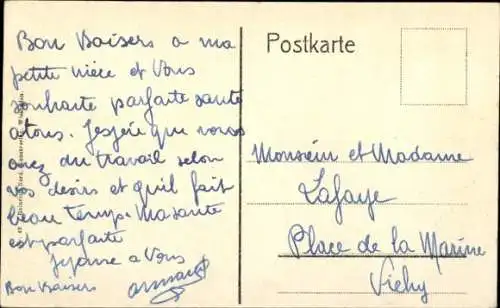 Bon Baisers a ma
petite nièce et Vous
souhaite parfaite santé
a tous. J'espère que vous
avez du travail selon
vos desirs et qu'il fait
beau temps. Ma sante
est parfaite
Je pense a Vous
Bon Baisers Armand
Postkarte
Monsieur et Madame
Lafaye
Place de la Marine
Vichy